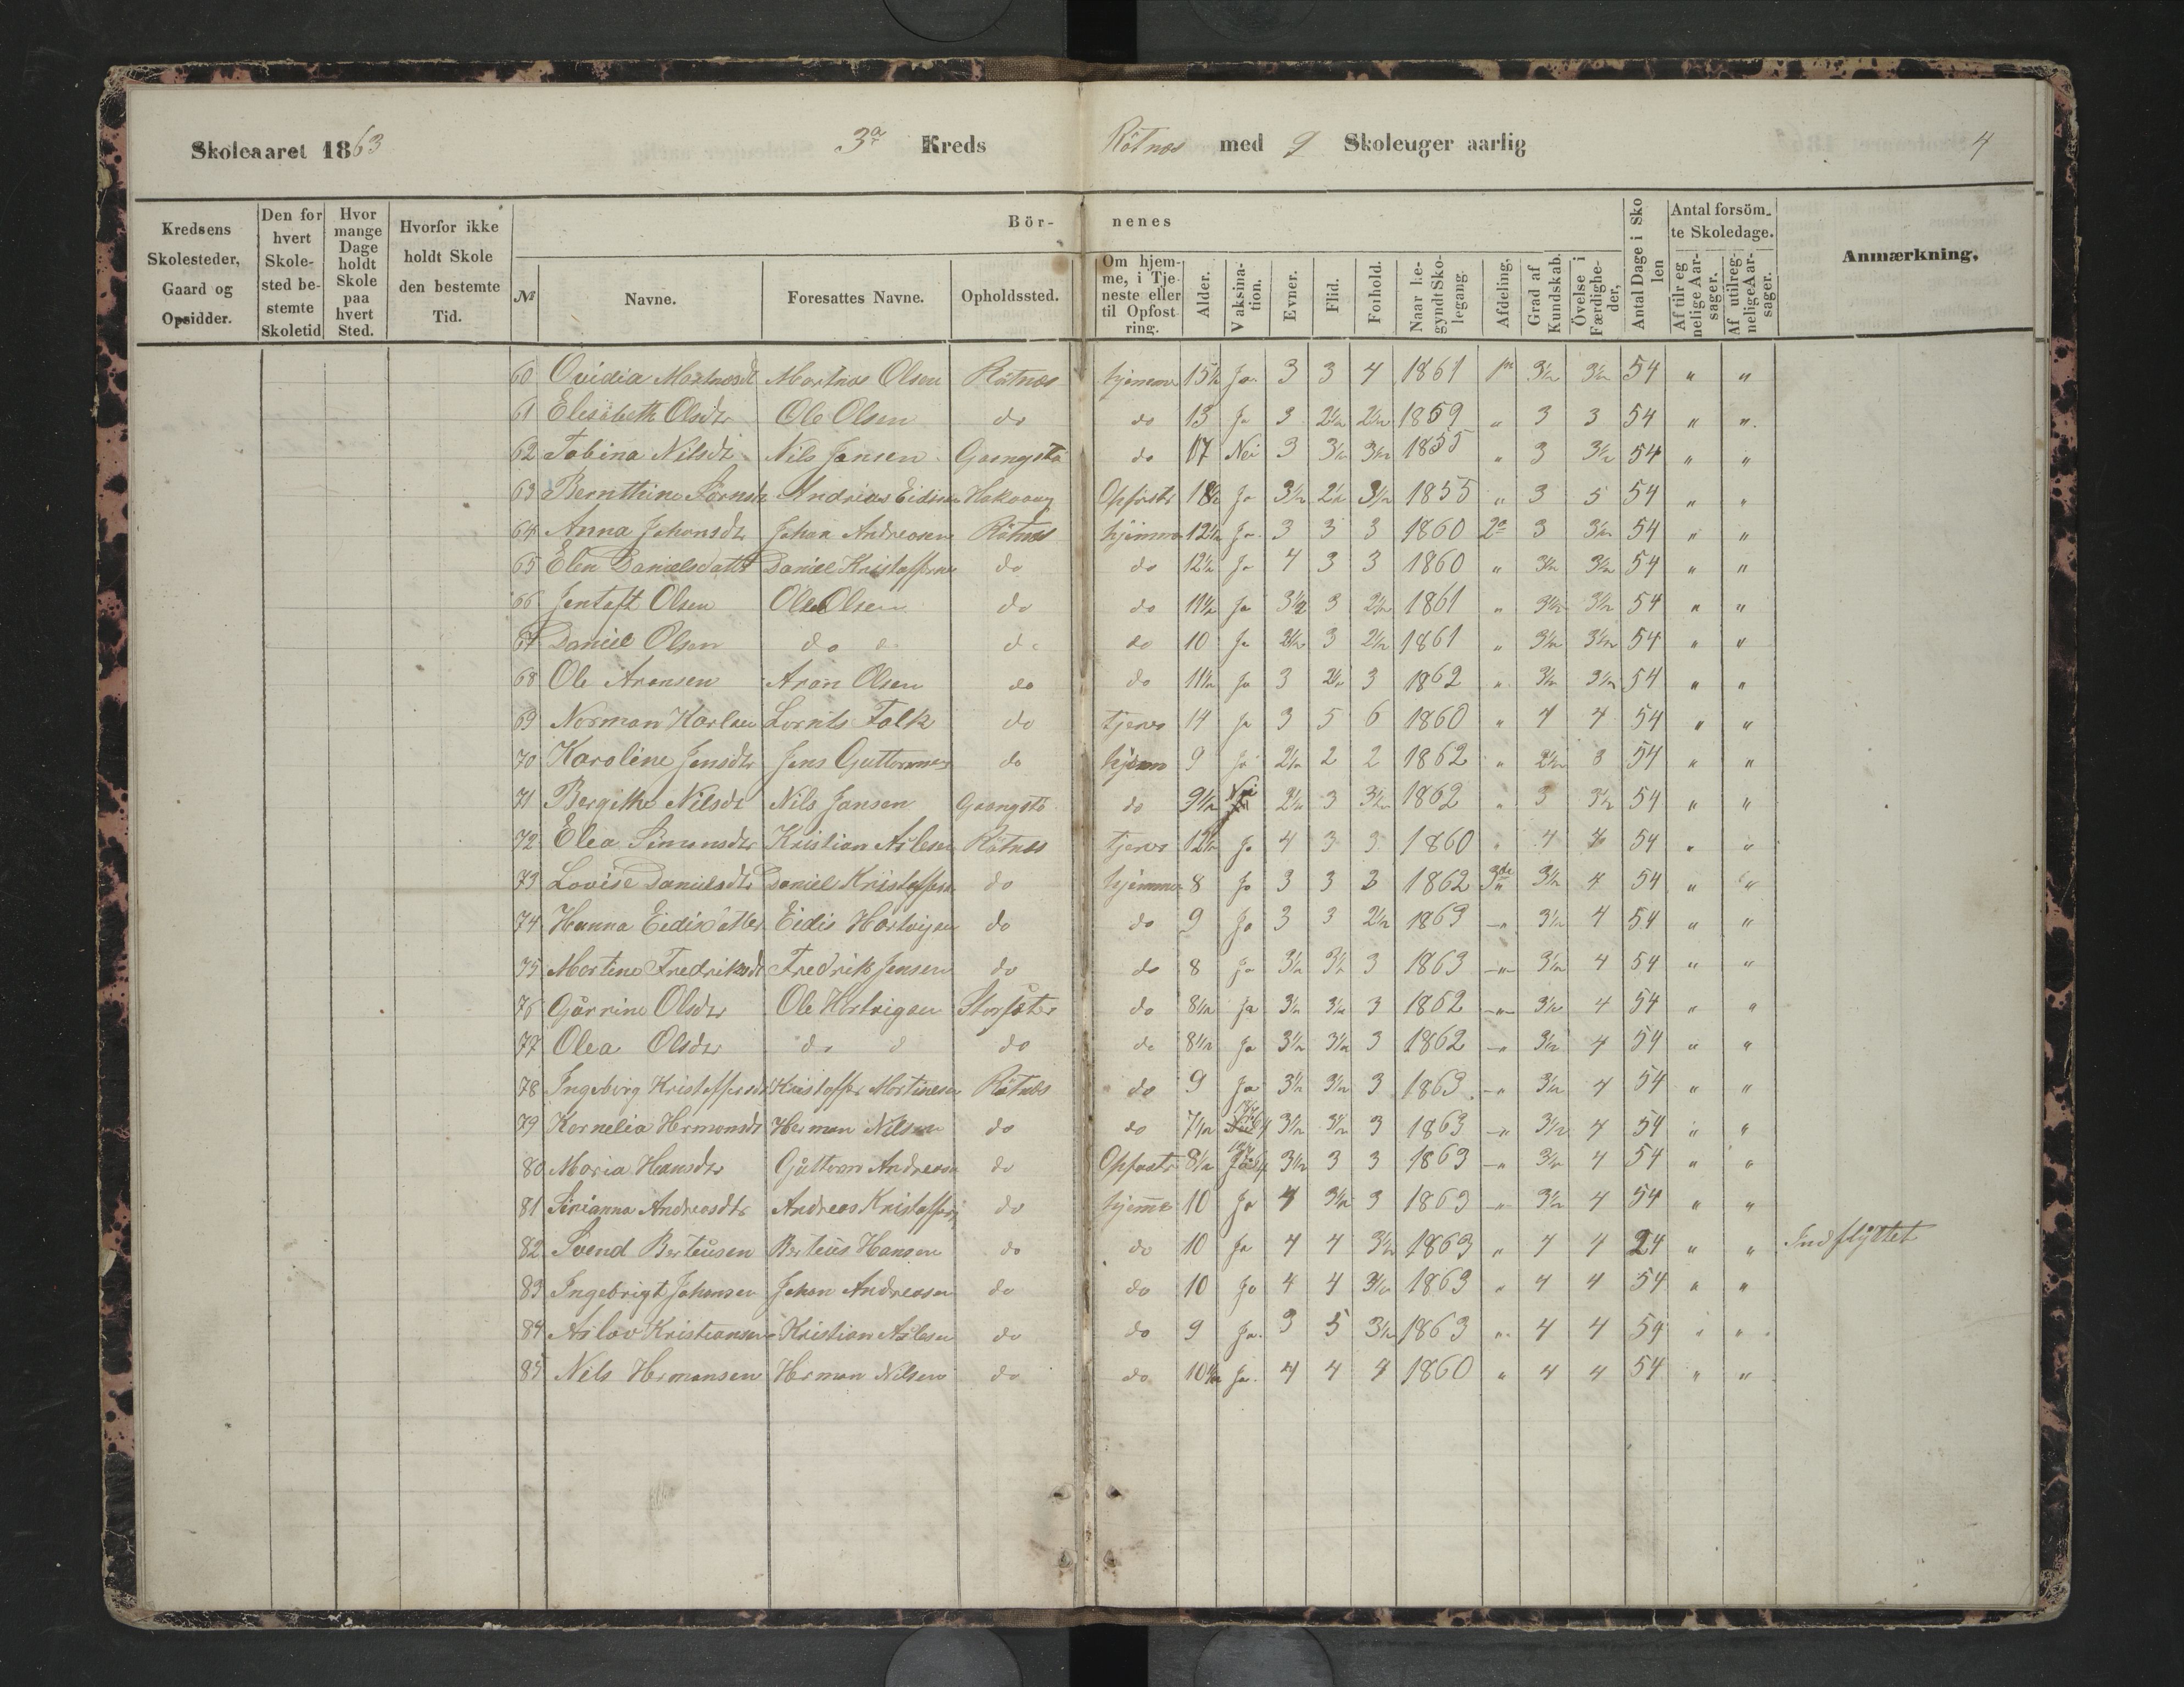 Skoleaaret 1863 3a Kreds Rötnæs med 9 Skoleuger aarlig 4
Kredsens Skolesteder, Gaard og Opsidder.
Den for hvert Skolested bestemte Skoletid
Hvor mange Dage holdt Skole paa hvert Sted.
Hvorfor ikke holdt Skole den bestemte Tid.
Bör- nenes
№ Navne. Foresattes Navne. Opholdssted.
Om hjemme, i Tjeneste eller til Opfostring.
Alder. Vaksination. Evner. Flid. Forhold. Naar begyndt Skolegang. Afdeling. Grad af Kundskab. Övelse i Færdigheder,
Antal Dage i Skolen
Antal forsömte Skoledage.
Af tilregnelige Aarsager. Af utilregnelige Aarsager.
Anmærkning.
60 Ovidia Martnæsdt Martnæs Olsen Rötnæs hjemme 15½ Ja 3 3 4 1861 1ste 3½ 3½ 54 " "
61 Elisabeth Olsdtr Ole Olsen do do 13 Ja 3 2½ 2½ 1859 " 3 3 54 " "
62 Tobina Nilsdt Nils Jansen Gaengstö do 17 Nei 3 3½ 3½ 1855 " 3 3½ 54 " "
63 Bernthine Andreas Opfostr Ja 3½ 2½ 3½ 1855 " 3 5 54 " "
64 Anna Johansdtr Johan Andreasen Rötnæs hjemme 12½ Ja 3 3 3 1860 2a 3 3½ 54 " "
65 Elen Danielsdattr Daniel Kristoffersen do do 12½ Ja 4 3 3 1860 " 3½ 3½ 54 " "
66 Jentoft Olsen Ole Olsen do do 11½ Ja 3½ 3 2½ 1861 " 3½ 3½ 54 " "
67 Daniel Olsen do do do do 10 Ja 2½ 3 2½ 1861 " 3½ 3½ 54 " "
68 Ole Aronsen Aron Olsen do do 11½ Ja 3 2½ 3 1862 " 3½ 3½ 54 " "
69 Norman Karlsen Lornts Falk do tjener 14 Ja 3 5 6 1860 " 4 4 54 " "
70 Karoline Jensdtr Jens Guttormes do hjem 9 Ja 2½ 2 2 1862 " 2½ 3 54 " "
71 Bergithe Nilsdt Nils Jansen Gaengstö do 9½ Nei 2½ 3 3½ 1862 " 3 3½ 54 " "
72 Elea Simonsdtr Kristian Aslesen Rötnæs tjener 12½ Ja 4 3 3 1860 " 4 4 54 " "
73 Lovise Danielsdtr Daniel Kristoffersen do hjemme 8 Ja 3 3 3 1862 3de 3½ 4 54 " "
74 Hanna Eidisdatter Eidis Hartvigsen do do 9 Ja 3 3 2½ 1863 " 3½ 4 54 " "
75 Martine Fredriksdt Fredrik Jensen do do 8 Ja 3½ 3½ 3 1863 " 3½ 4 54 " "
76 Gørrine Olsdtr Ole Hartvigsen Storsæter do 8½ Ja 3½ 3½ 3 1862 " 3½ 4 54 " "
77 Olea Olsdtr do d do do 8½ Ja 3½ 3½ 3 1862 " 3½ 4 54 " "
78 Ingeborg Kristoffersdt Kristoffer Martinesen Rötnæs do 9 Ja 3½ 3½ 3 1863 " 3½ 4 54 " "
79 Kornelia Hermansdt Herman Nilsen do do 7½ 3½ 3½ 3 1863 " 3½ 4 54 " "
80 Maria Hansdtr Guttorm Andreasen do Opfostr 8½ 3½ 3 3 1863 " 3½ 4 54 " "
81 Sirianna Andreasdtr Andreas Kristoffers do hjemme 10 Ja 4 3½ 3 1863 " 3½ 4 54 " "
82 Svend Berteusen Berteus Hansen do do 10 Ja 4 4 3½ 1863 " 4 4 24 " " Indflyttet
83 Ingebrigt Johansen Johan Andreasen do do 10 Ja 4 4 3½ 1863 " 4 4 54 " "
84 Aslov Kristiansen Kristian Aslesen do do 9 Ja 3 5 3½ 1863 " 4 4 54 " "
85 Nils Hermansen Herman Nilsen do do 10½ Ja 4 4 4 1860 " 4 4 54 " "